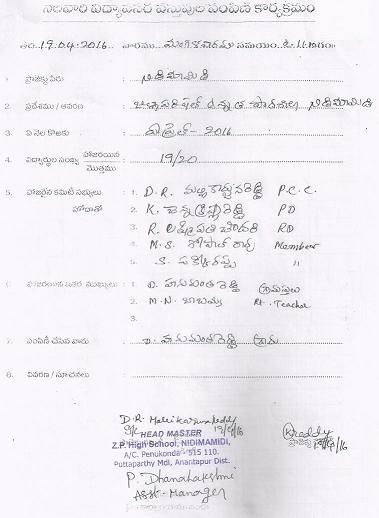 నెలవారి విద్యావనర వస్తువుల పంపిణీ కార్యక్రమం
తేది.19.04.2016 వారము మంగళవారము సమయం. ఉ.11.గం॥
1. ప్రాజెక్టు పేరు : నిడిమామిడి
2. ప్రదేశము / ఆవరణ : జిల్లాపరిషత్ ఉన్నత పాఠశాల నిడిమామిడి
3. ఏ నెల కొఱకు : ఏప్రిల్ - 2016
4. విద్యార్థుల సంఖ్య హాజరయిన / మొత్తము : 19/20
5. హాజరైన కమిటీ సభ్యులు : 1. D.R. మల్లికార్జునరెడ్డి P.C.C.
హోదాతో 2. K. చెన్నక్రిష్ణారెడ్డి PD
3. R. లక్ష్మీపతి చౌదరి RD
4. M.S. గోపాల్ రావు Member
5. S. "
6. హాజరయిన ఇతర ముఖ్యులు : 1. D. హనుమంత రెడ్డి గ్రామస్తులు
2. M.N. బాబయ్య Rt. Teacher
3.
7. పంపిణీ చేసిన వారు : D. హనుమంతరెడ్డి గ్రామ
8. వివరణ / సూచనలు :
D.R. Mallikarjuna Reddy
19/4/16
HEAD MASTER
Z.P. High School, NIDIMAMIDI,
A/C. Penukonda - 515 110.
Puttaparthy Mdl, Anantapur Dist.
P. Dhanalakshmi
Asst-Manager
KReddy
19/4/16